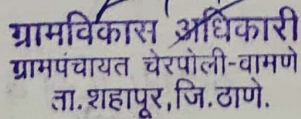 ग्रामविकास अधिकारी
ग्रामपंचायत चेरपोली-वामणे
ता.शहापूर,जि.ठाणे.